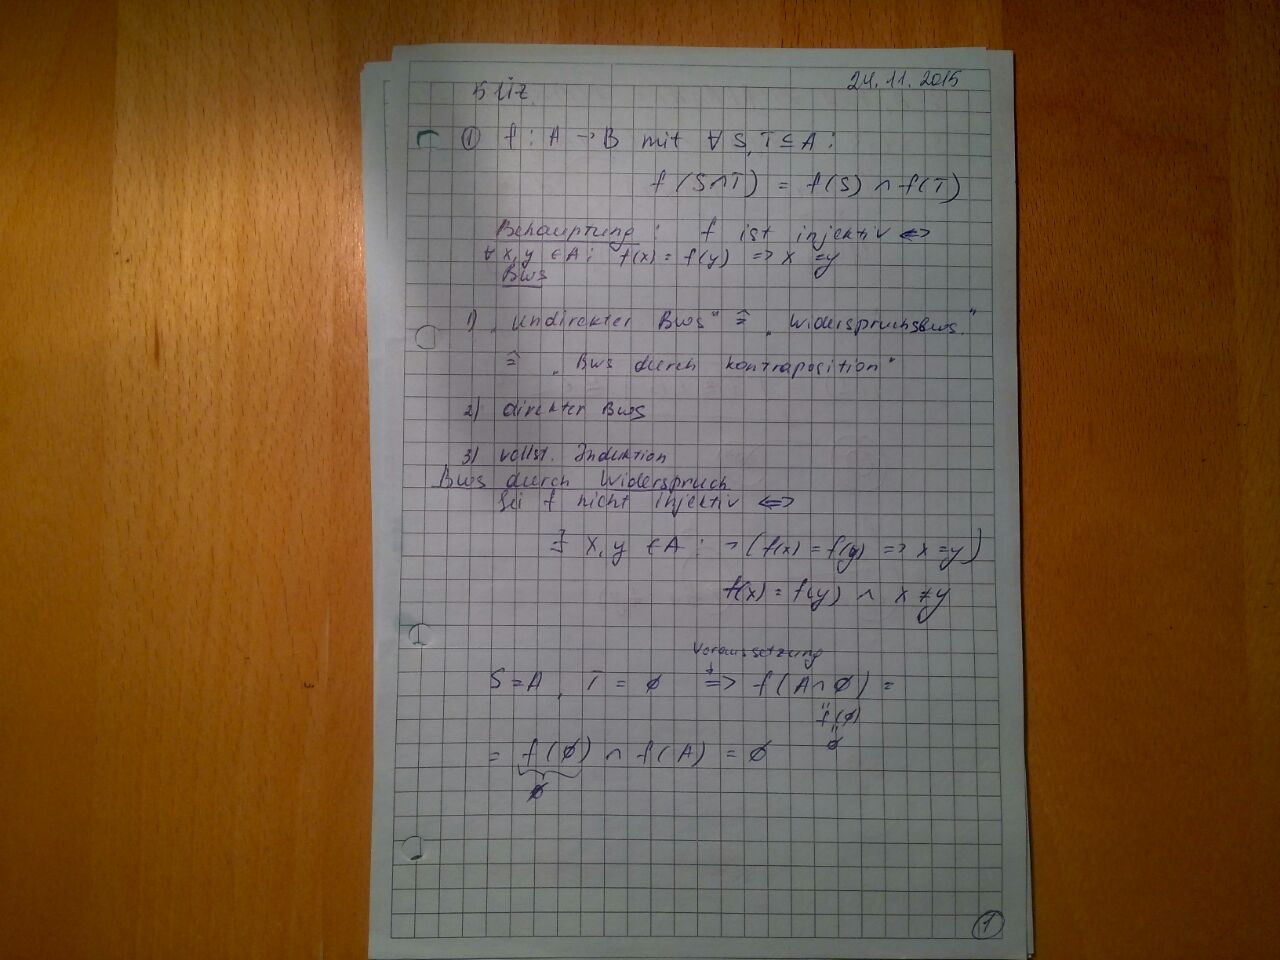 24.11.2015
① f : A → B mit ∀ S, T ⊆ A :
f (S ∩ T) = f(S) ∩ f(T)
Behauptung : f ist injektiv ⇔
∀ x, y ∈ A : f(x) = f(y) => x = y
Bws
1) „Undirekter Bws" ≙ „Widerspruchsbws."
≙ „Bws durch Kontraposition"
2) direkter Bws
3) vollst. Induktion
Bws durch Widerspruch
Sei f nicht injektiv ⇔
∃ x, y ∈ A : ¬ (f(x) = f(y) => x = y)
f(x) = f(y) ∧ x ≠ y
Voraussetzung
S = A , T = ∅ => f (A ∩ ∅) =
" f(∅)
" ∅
= f(∅) ∩ f(A) = ∅
∅
①